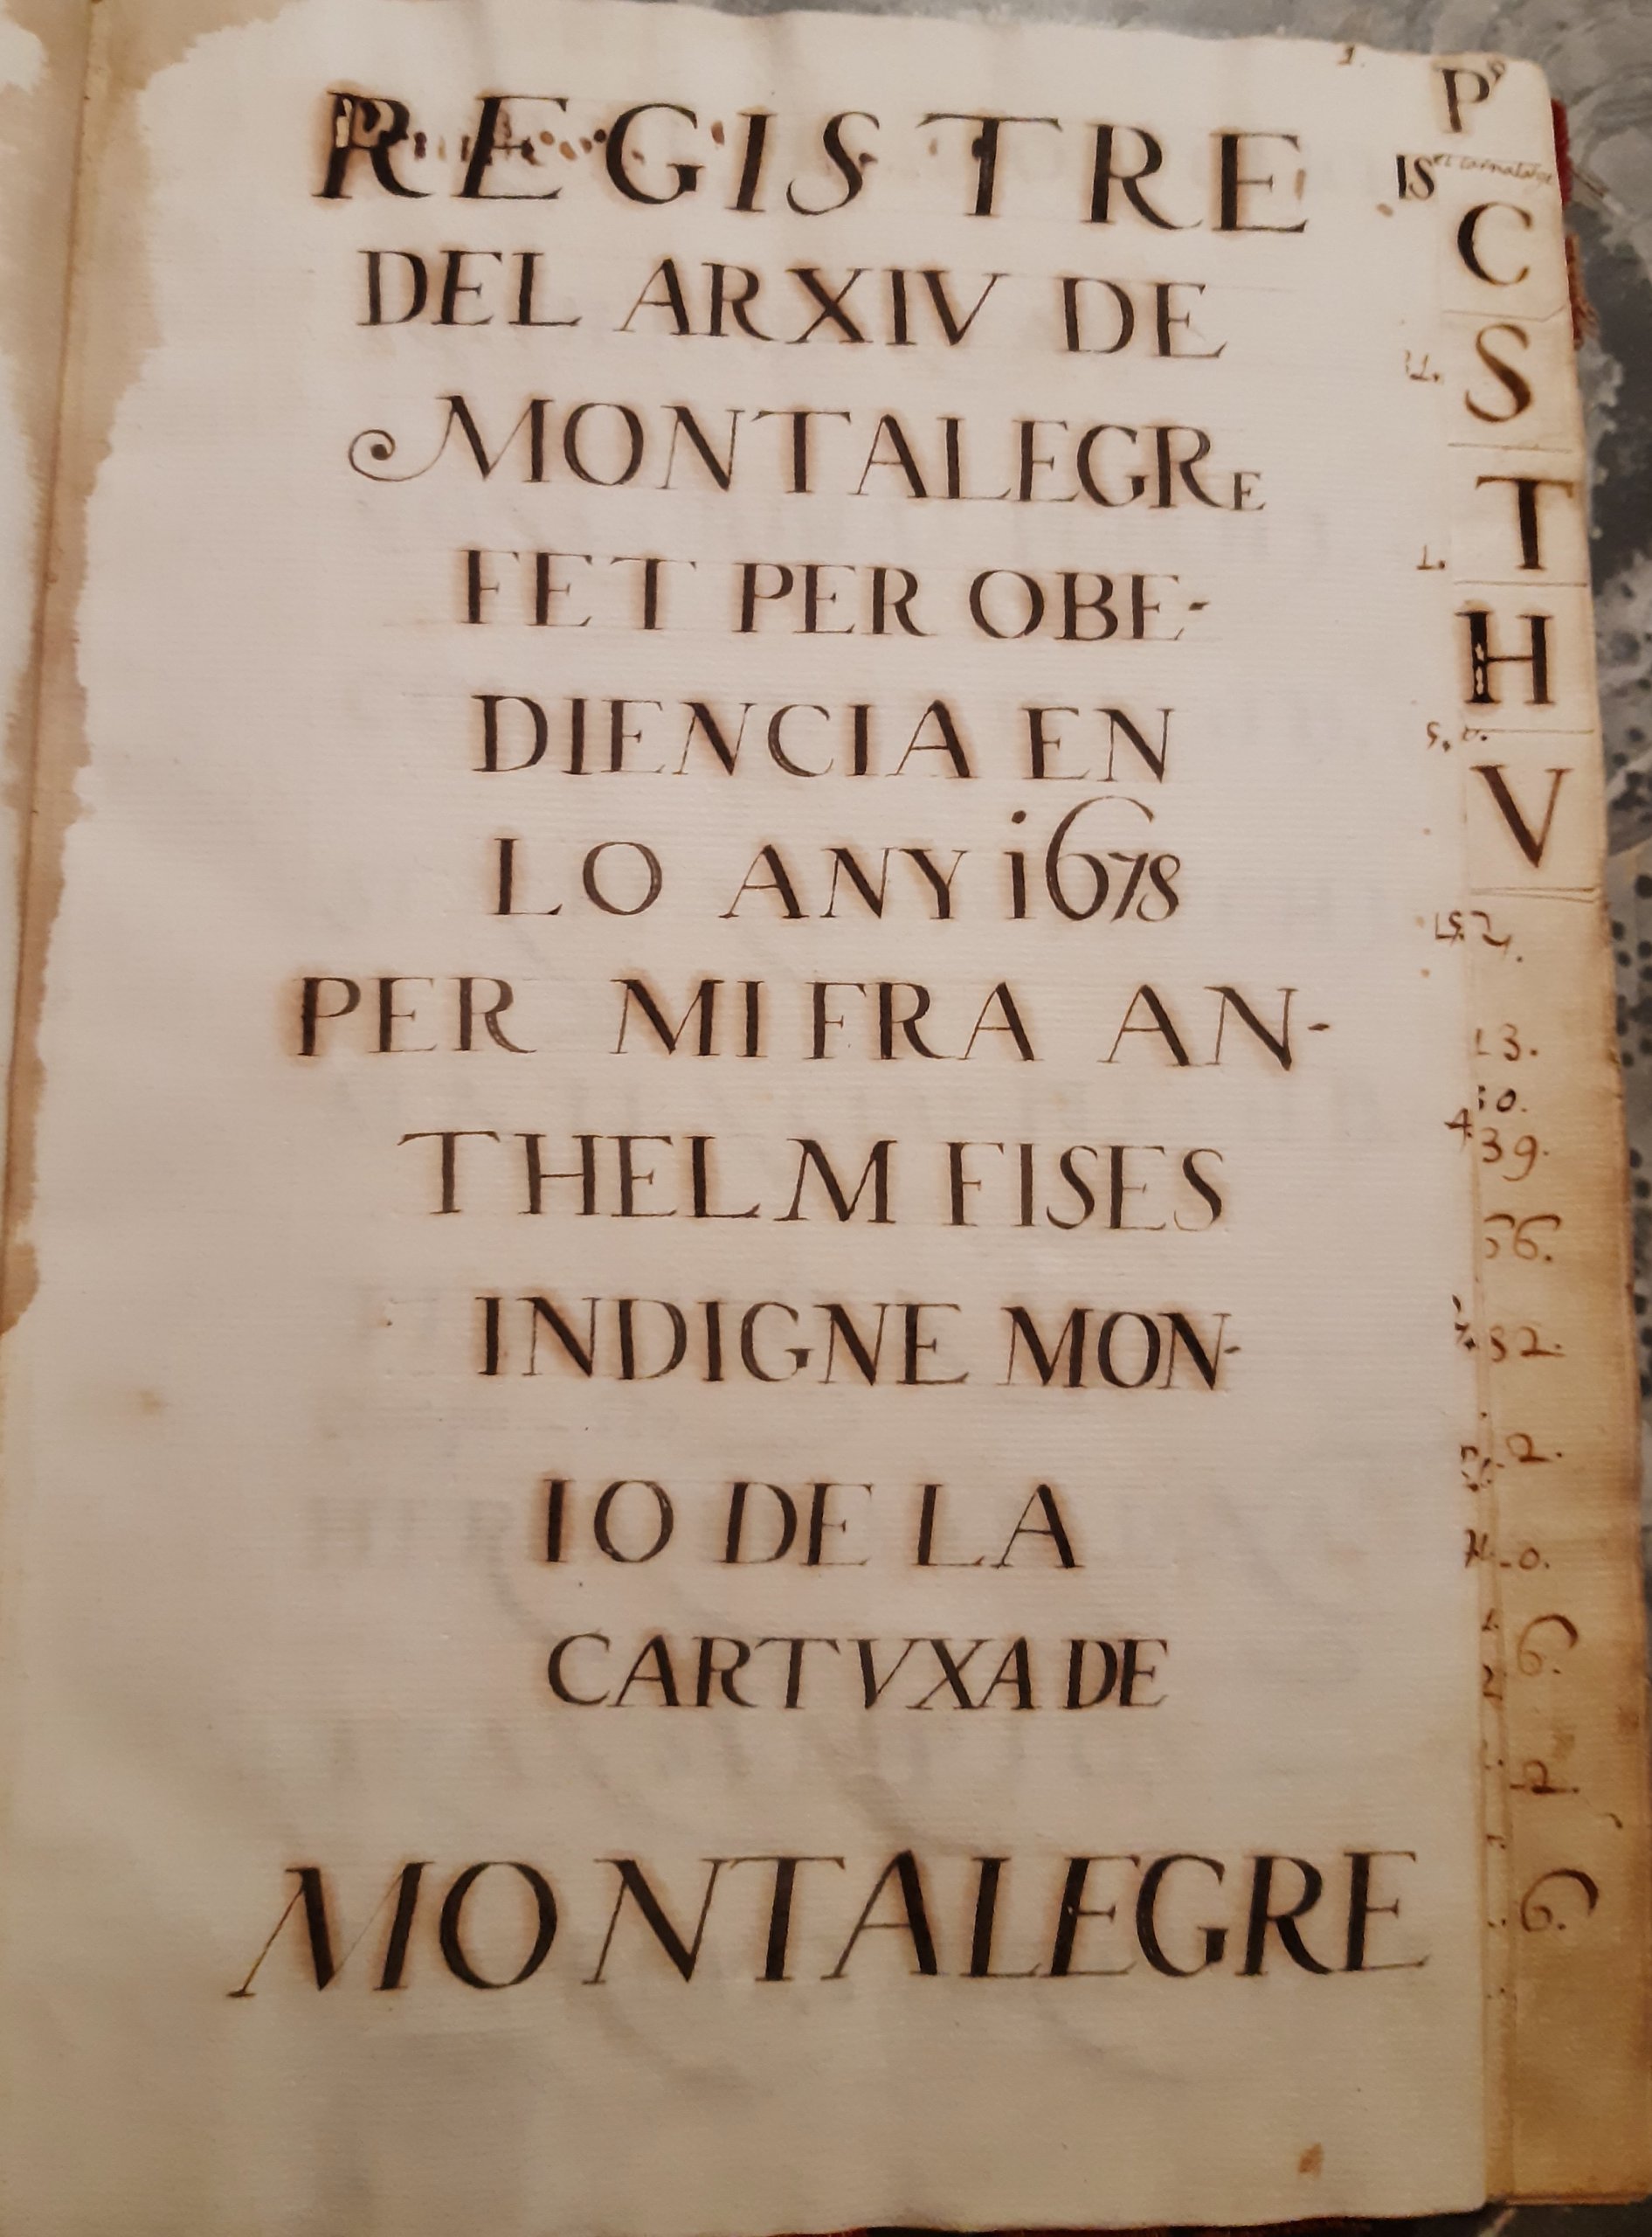 REGISTRE
DEL ARXIV DE
MONTALEGRE
FET PER OBE-
DIENCIA EN
LO ANY 1678
PER MI FRA AN-
THELM FISES
INDIGNE MON-
IO DE LA
CARTVXA DE
MONTALEGRE
P
C
S
T
H
V
13.
39.
66.
82.
2.
0.
6.
6.